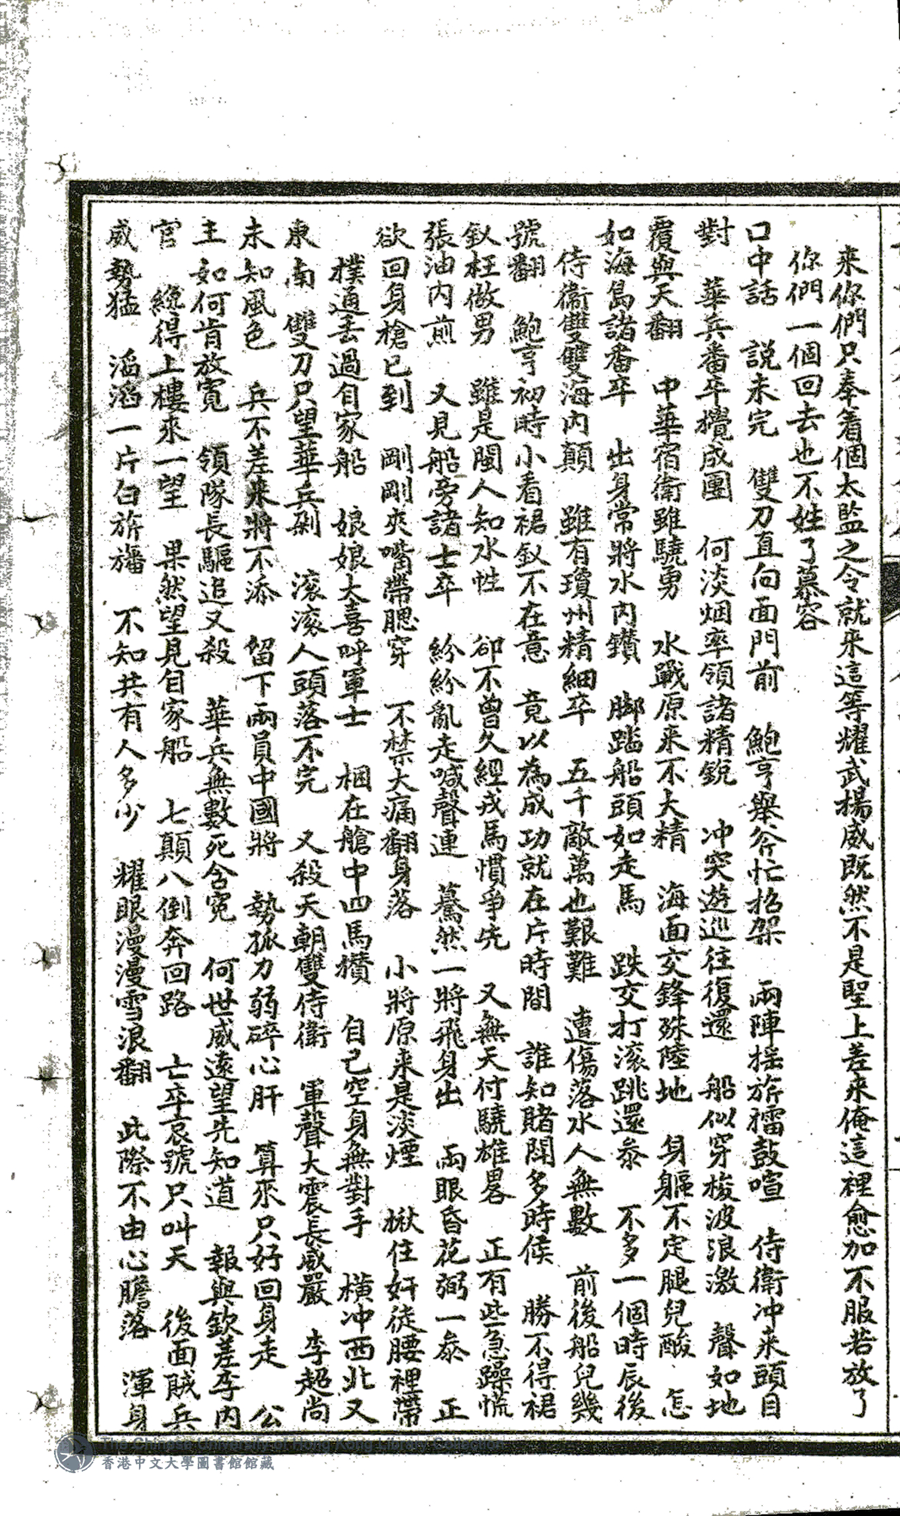 來你們只奉着個太監之令就來這等耀武揚威既然不是聖上差來俺這裡愈加不服若放了
你們一個回去也不姓了慕容
口中話　說未完　雙刀直向面門前　鮑亨舉斧忙招架　兩陣搖旂擂鼓喧　侍衛冲來頭目
對　華兵番卒攪成團　何淡烟率領諸精銳　冲突遊巡往復還　船似穿梭波浪激　聲如地
覆與天翻　中華宿衛雖驍勇　水戰原來不大精　海面交鋒殊陸地　身軀不定腿兒酸　怎
如海島諸番卒　出身常將水內鑽　脚踏船頭如走馬　跌交打滾跳還叅　不多一個時辰後
侍衛雙雙海內顛　雖有瓊州精細卒　五千敵萬也艱難　遭傷落水人無數　前後船兒幾
號翻　鮑亨初時小看裙釵不在意　竟以為成功就在片時間　誰知賭鬪多時候　勝不得裙
釵枉做男　雖是閩人知水性　卻不曾久經戎馬慣爭先　又無天付驍雄畧　正有些急躁慌
張油內煎　又見船旁諸士卒　紛紛亂走喊聲連　驀然一將飛身出　兩眼昏花弼一叅　正
欲回身槍已到　剛剛夾嘴帶腮穿　不禁大痛翻身落　小將原來是淡煙　揪住奸徒腰裡帶
撲通丟過自家船　娘娘大喜呼軍士　梱在艙中四馬攢　自己空身無對手　橫冲西北又
東南　雙刀只望華兵剁　滾滾人頭落不完　又殺天朝雙侍衛　軍聲大震長威嚴　李超尚
未知風色　兵不差來將不添　留下兩員中國將　勢孤力弱碎心肝　算來只好回身走　公
主如何肯放寬　領隊長驅追又殺　華兵無數死含寃　何世威遠望先知道　報與欽差李內
官　纔得上樓來一望　果然望見自家船　七顛八倒奔回路　亡卒哀號只叫天　後面賊兵
威勢猛　滔滔一片白旂旛　不知共有人多少　耀眼漫漫雪浪翻　此際不由心膽落　渾身
香港中文大學圖書館館藏